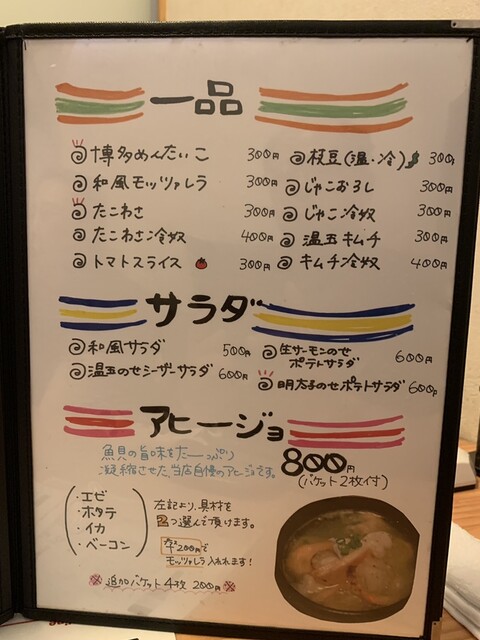 一品
博多めんたいこ 300円
和風モッツァレラ 300円
たこわさ 300円
たこわさ冷奴 400円
トマトスライス 300円
枝豆(温・冷) 300円
じゃこおろし 300円
じゃこ冷奴 300円
温玉キムチ 300円
キムチ冷奴 400円
サラダ
和風サラダ 500円
温玉のせシーザーサラダ 600円
生サーモンのせ
ポテトサラダ 600円
明太子のせポテトサラダ 600円
アヒージョ
魚貝の旨味をたーっぷり
凝縮させた、当店自慢のアヒージョです。
800円
(バケット2枚付)
・エビ
・ホタテ
・イカ
・ベーコン
左記より、具材を
2つ選んで頂けます。
200円で
モッツァレラ入れれます!
追加バケット4枚 200円